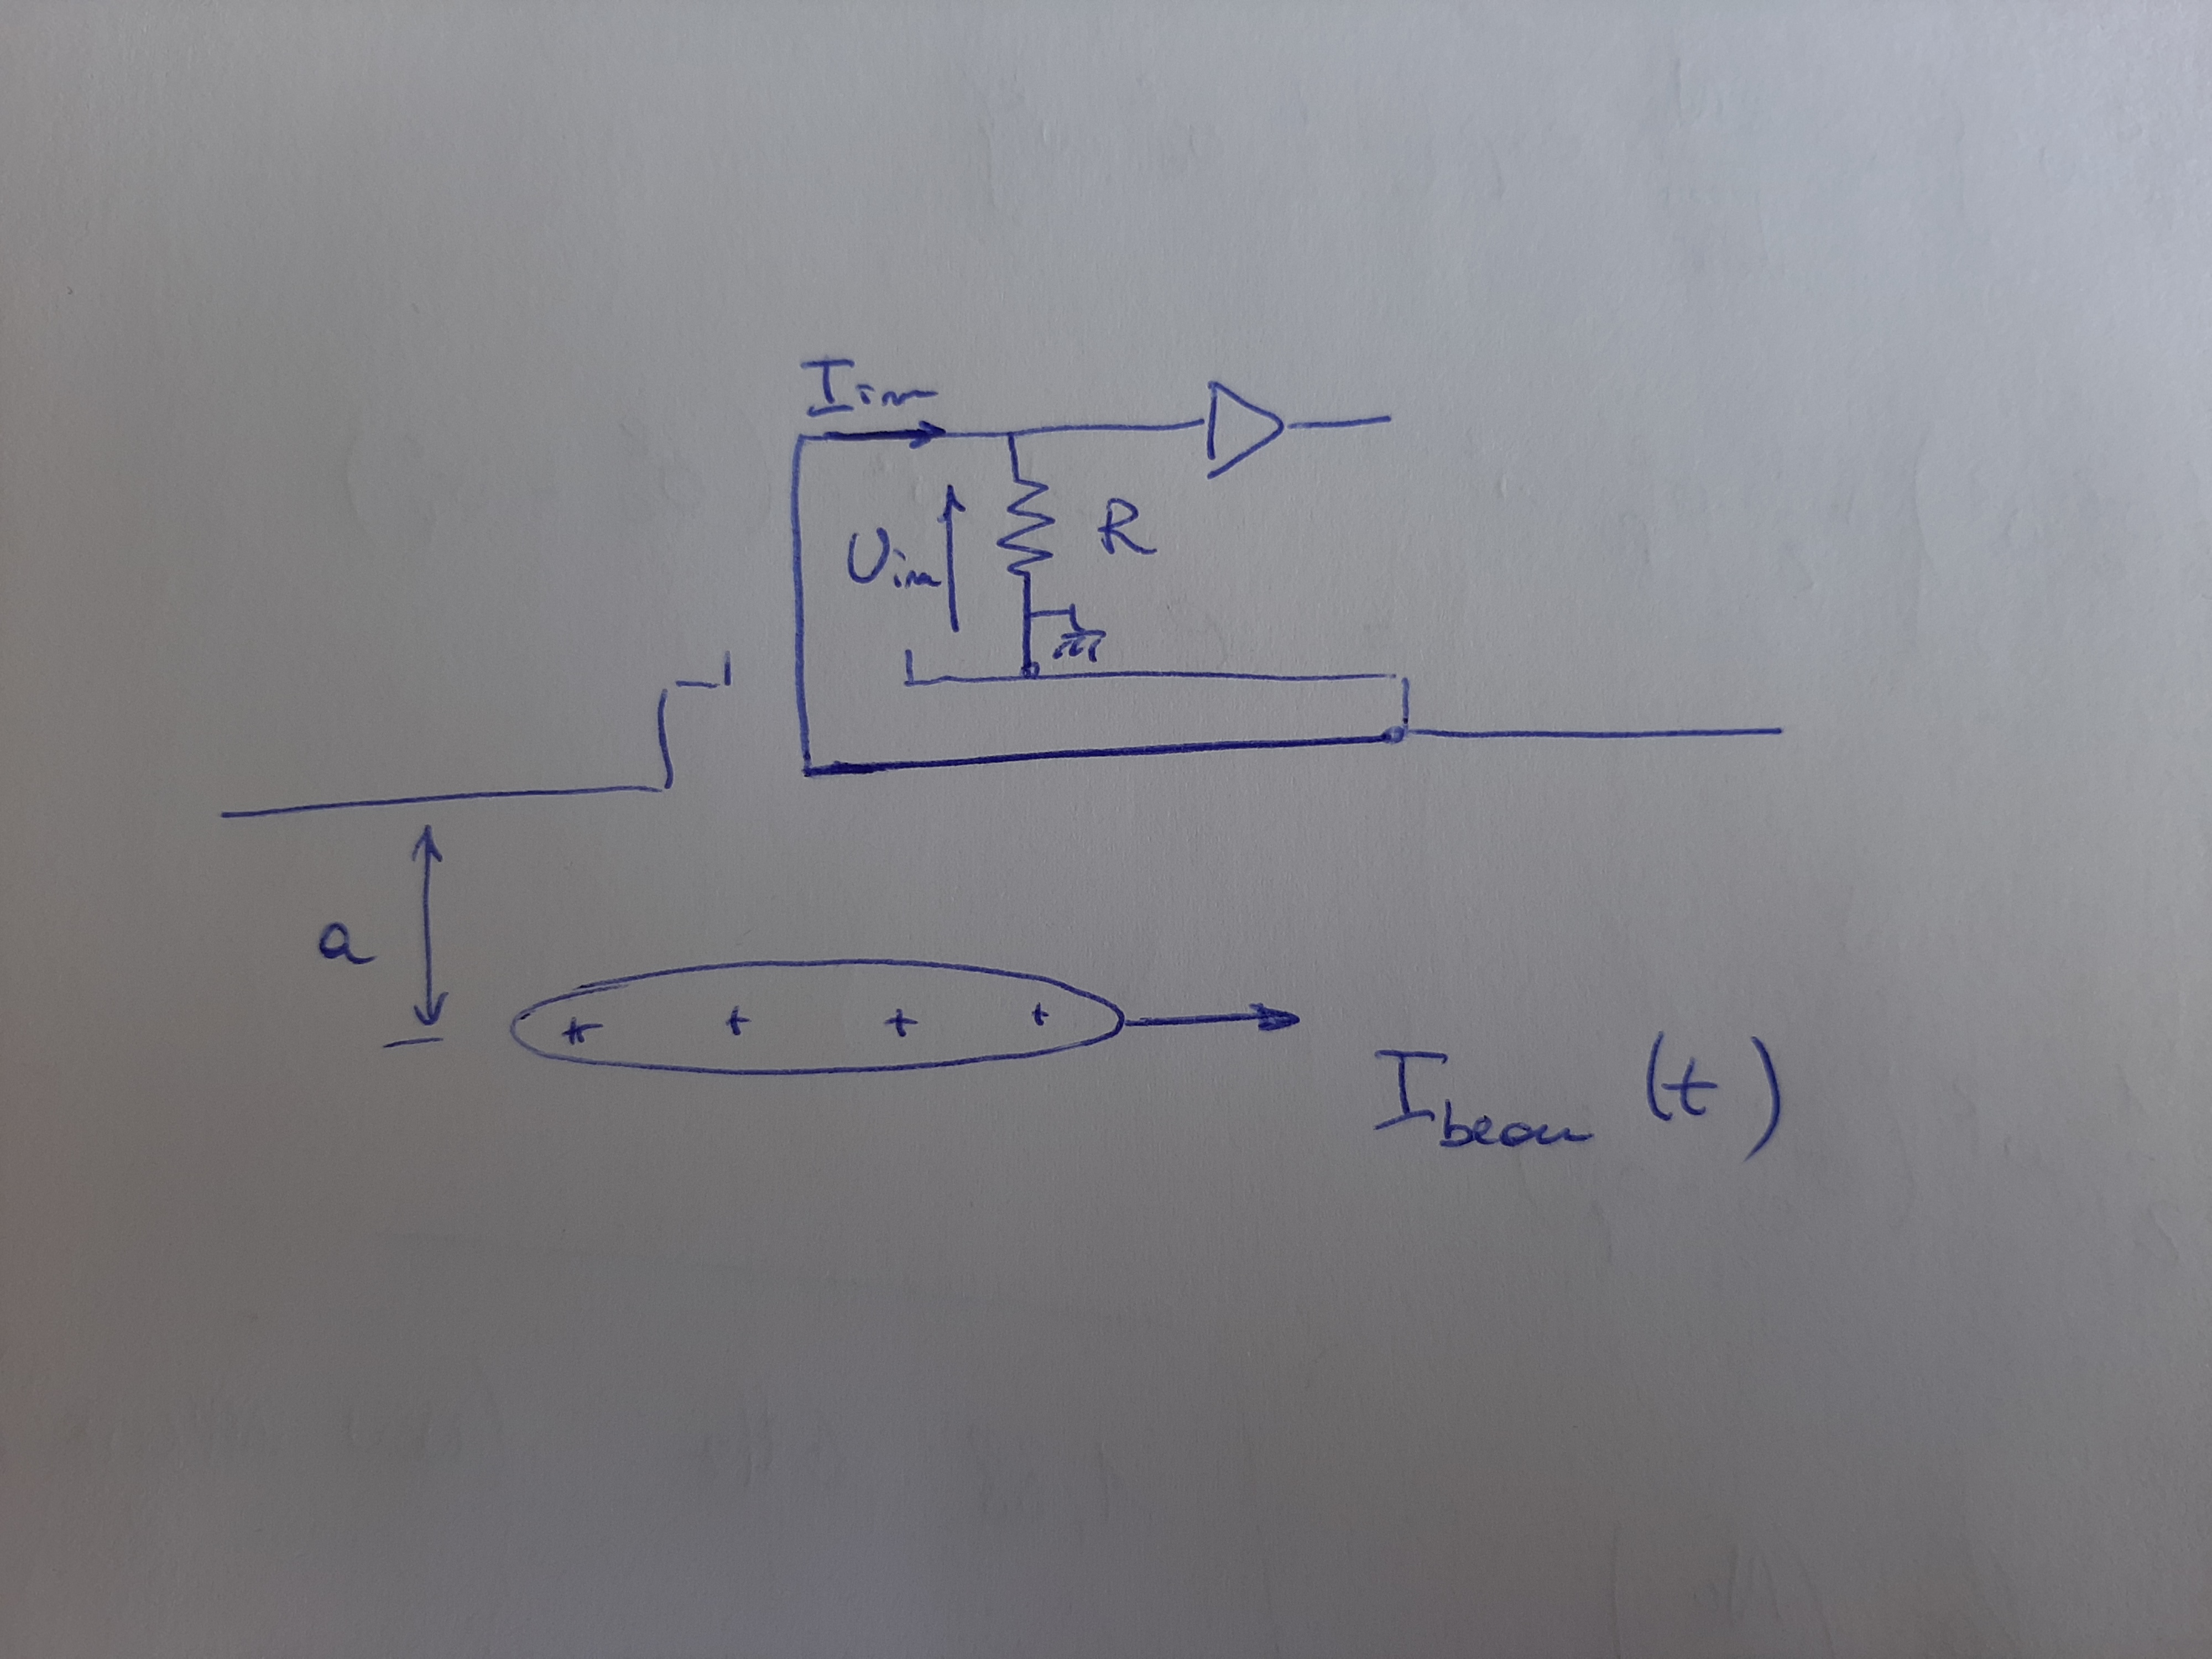 I im
U im
R
a
+ + + +
I beam (t)